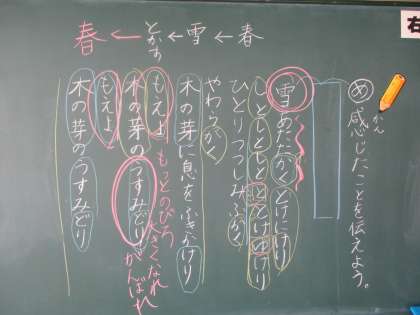 右
め 感じたことを伝えよう。
かん
雪あたたかくとけにけり
しとしとしととけゆけり
ひとりつつしみふかく
やわらかく
木の芽に息をふきかけり
もえよ
もっとのびろ
大きくなれ
がんばれ
木の芽のうすみどり
もえよ
木の芽のうすみどり
春→雪→とかす→春